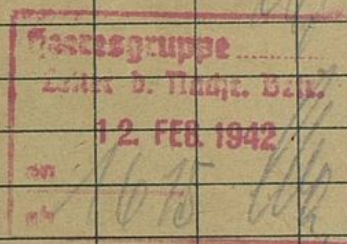 Heeresgruppe ..........
Leiter d. Nachr. Betr.
12. FEB. 1942
an 1615
ab